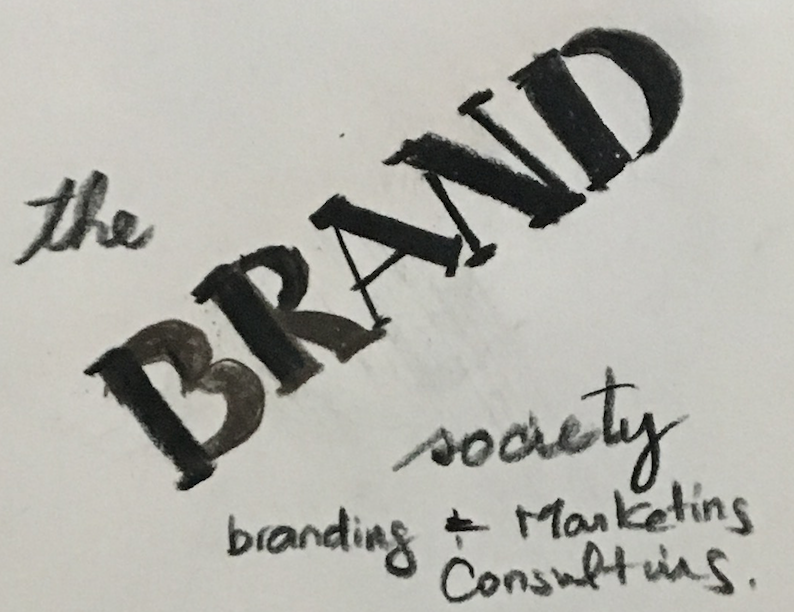 the
BRAND
society
branding + Marketing
Consulting.